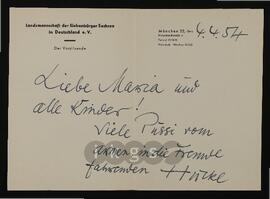 Landsmannschaft der Siebenbürger Sachsen
in Deutschland e. V.
Der Vorsitzende
München 22, den 4.4.54
Liebe Maria und
alle Kinder!
Viele Pussi vom
in die Fremde
fahrenden